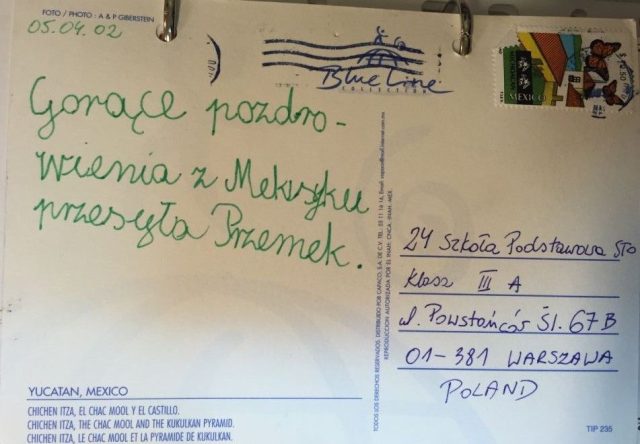 FOTO / PHOTO : A & P GIBERSTEIN
05.04.02
Blue Line
COLLECTION
MEXICO
Gorące pozdro-
wienia z Meksyku
przesyła Przemek.
24 Szkoła Podstawowa STO
Klasa III A
ul. Powstańców Śl. 67B
01-381 WARSZAWA
POLAND
TODOS LOS DERECHOS RESERVADOS. DISTRIBUIDO POR CAPACO, S.A. DE C.V.
REPRODUCCION AUTORIZADA POR EL INAH: CNCA.-INAH.-MEX.
YUCATAN, MEXICO
CHICHEN ITZA, EL CHAC MOOL Y EL CASTILLO.
CHICHEN ITZA, THE CHAC MOOL AND THE KUKULKAN PYRAMID.
CHICHEN ITZA, LE CHAC MOOL ET LA PYRAMIDE DE KUKULKAN.
TIP 235